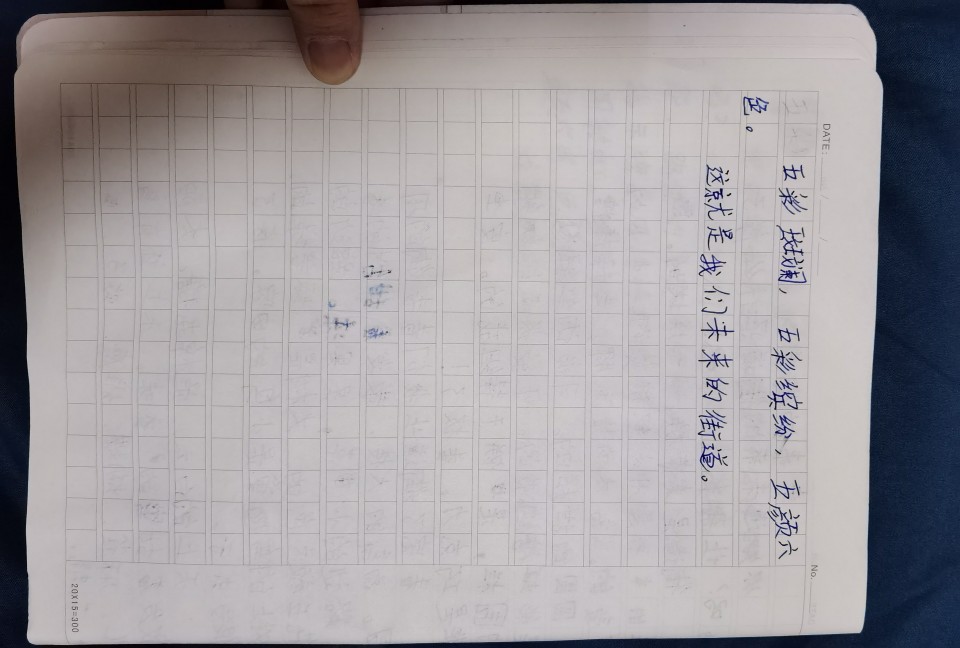 DATE: / /
No.
五彩斑斓，五彩缤纷，五颜六
色。
这就是我们未来的街道。
20X15=300